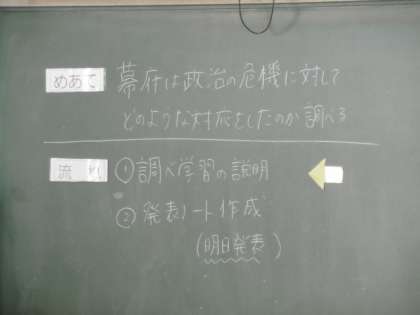 めあて 幕府は政治の危機に対して
どのような対応をしたのか調べる
流れ ①調べ学習の説明
②発表ノート作成
(明日発表)